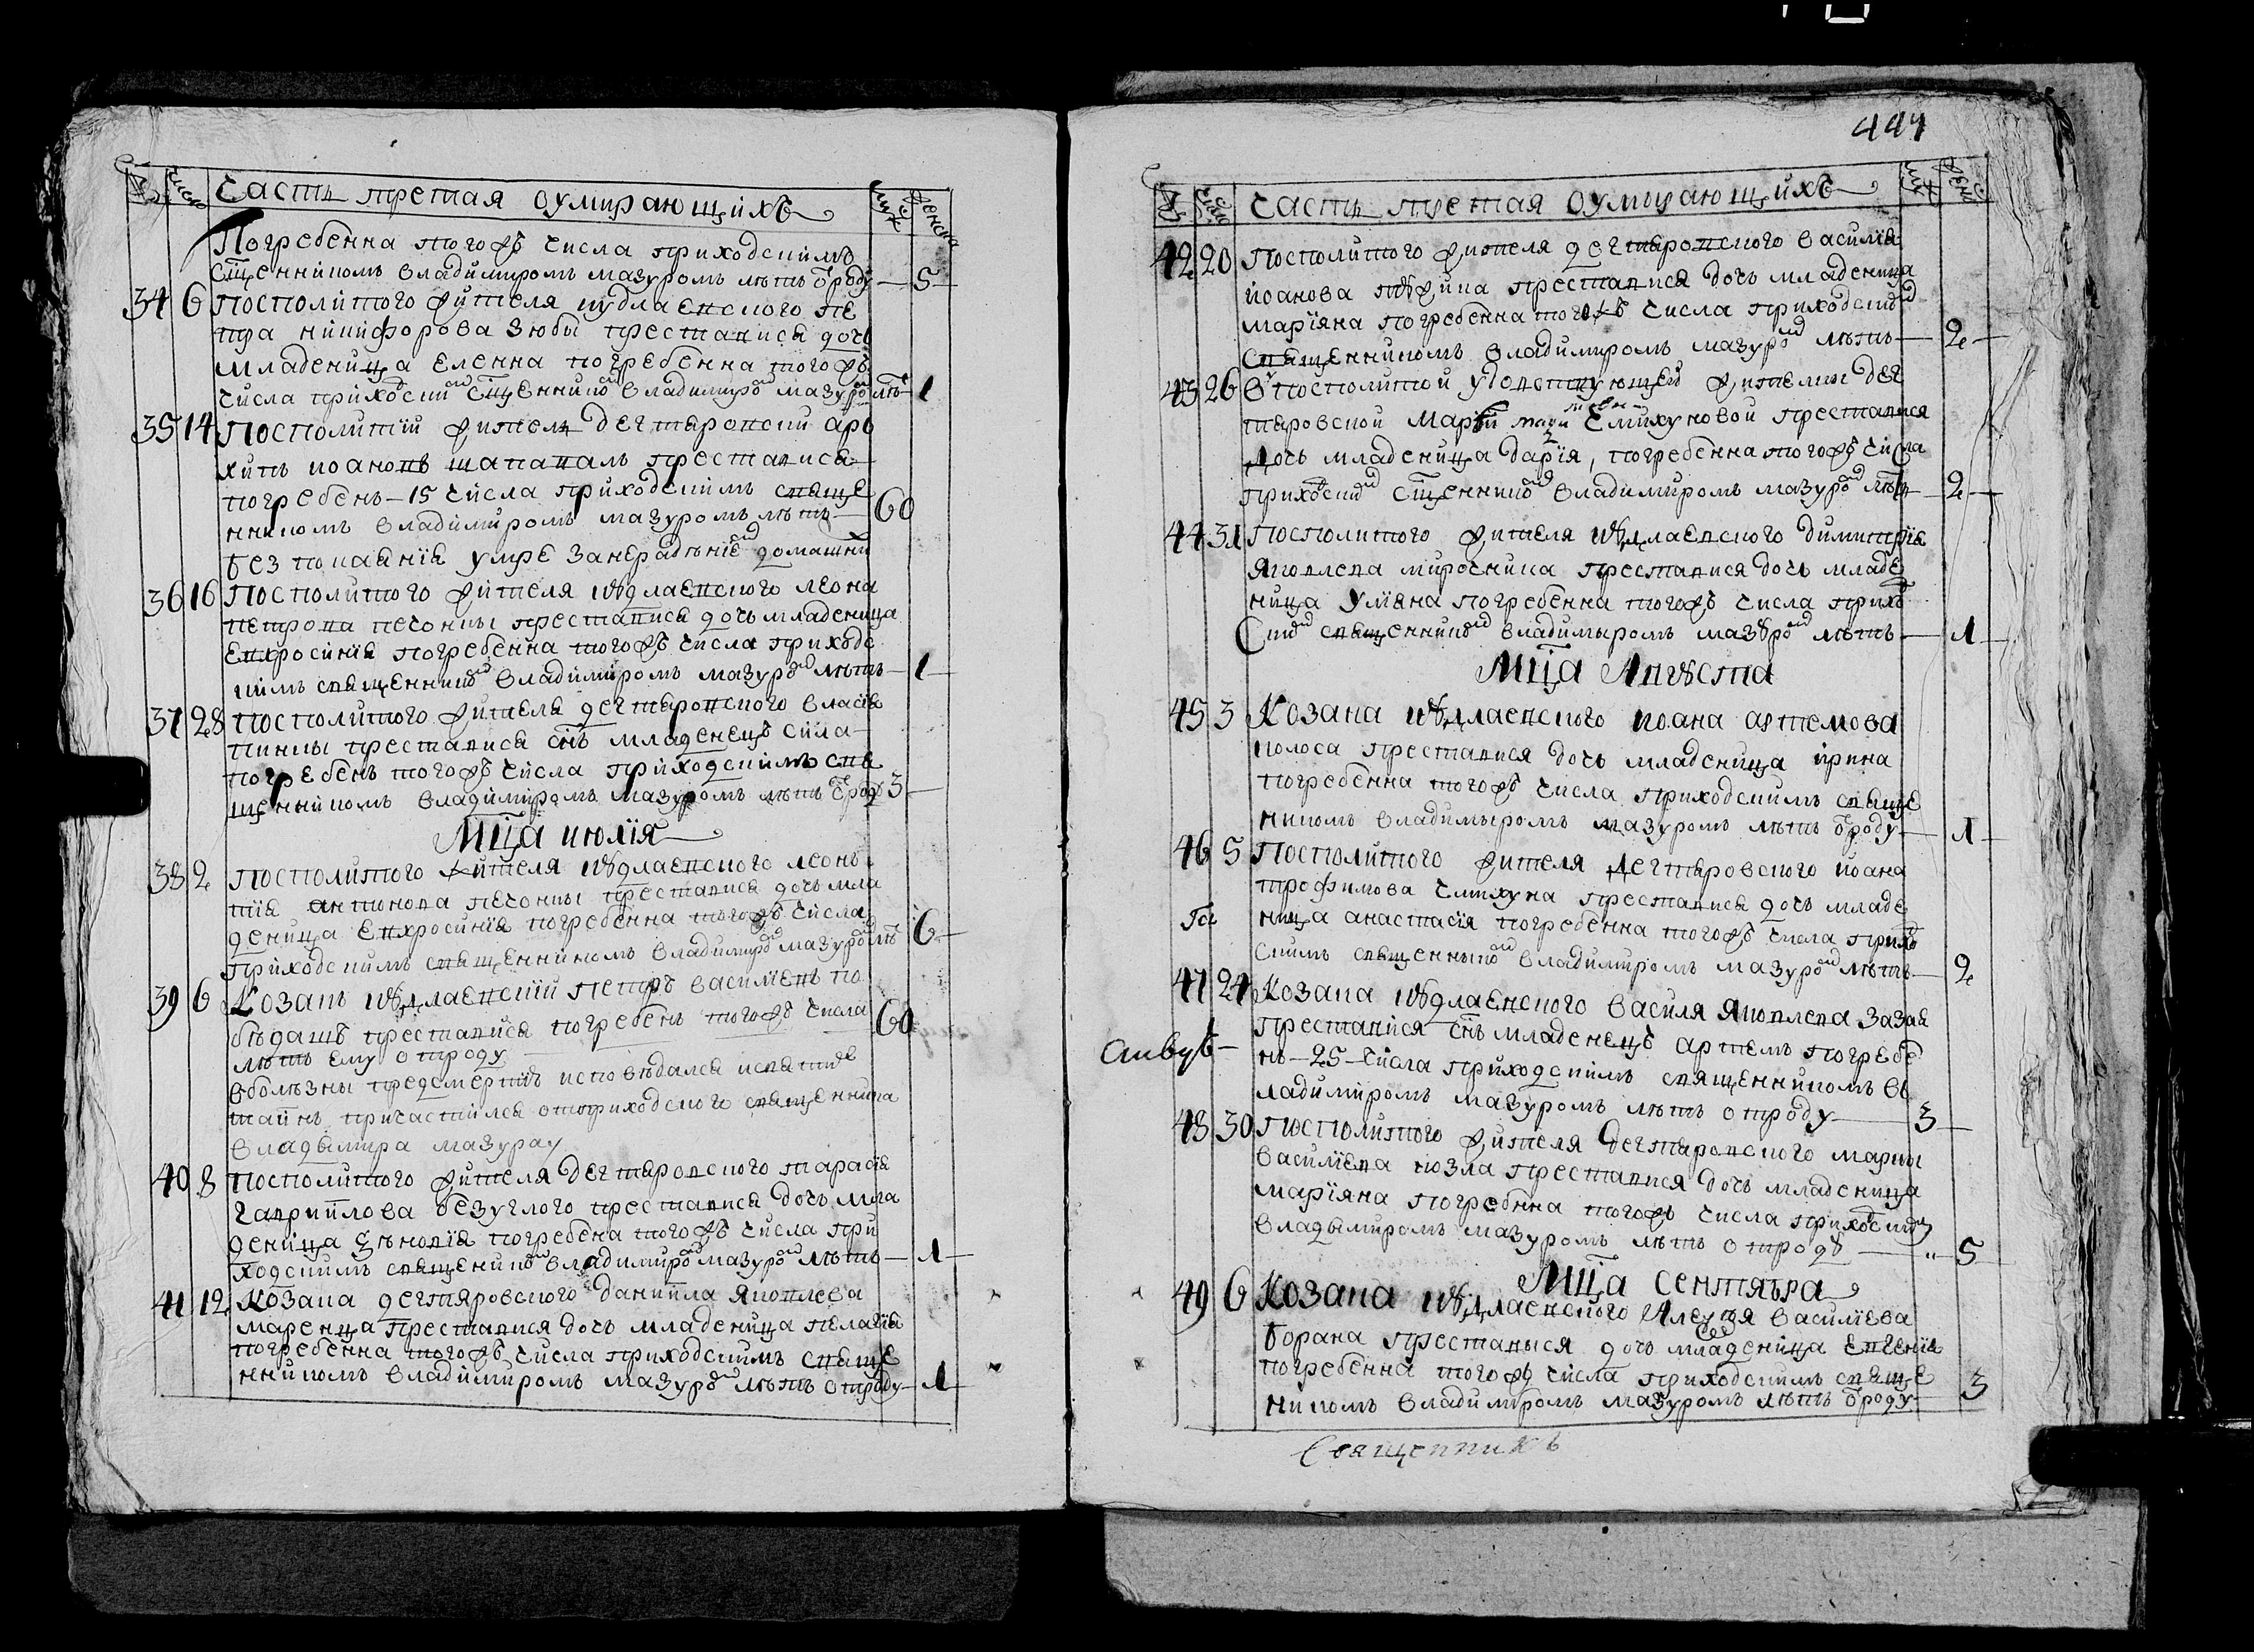 № число Часть третая оумирающихъ муж женска
Погребенна того жъ числа приходскимъ
сщенникомъ владимиромъ мазуромъ лѣтъ ѿроду — 5
34 6 Посполитого жителя иудлаевского пе
тра никифорова зюбы преставися дочь
младеница еленна погребенна того жъ
числа приходским сщенником владимиром мазуром лѣт 1
35 14 Посполитій житель дегтяровскій арх
хипъ иоановъ шаповалъ преставися
погребенъ — 15 числа приходскимъ свяще
нникомъ владимиромъ мазуромъ лѣтъ — 60
без покаянія умре занерадѣніем домашни
36 16 Посполитого жителя иꙋдлаевского леона
петрова печонки преставися дочь младеница
евхросинія погребенна того жъ числа приходс
кимъ священником владимиромъ мазуром лѣтъ — 1
37 28 Посполитого жителя дегтяровского власія
пинки преставися снъ младенецъ сила
погребенъ того жъ числа приходскимъ свя
щенникомъ владимиромъ мазуромъ лѣтъ ѿрод 3
Мца июлія
38 2 Посполитого жителя иꙋдлаевского леон
тія антонова печонки преставися дочь мла
деница евхросинія погребенна того жъ числа
приходскимъ священникомъ владимиром мазуром лѣ 6
39 6 Козакъ иꙋдлаевскій петръ василіевъ по
бѣдашъ преставися погребенъ того жъ числа 60
лѣтъ ему отроду
вболѣзны предсмертнѣ исповѣдался исвятих
тайнъ причастился отприходского священника
владымира мазура
40 8 Посполитого жителя дегтяровского тарасія
гавриилова безуглого преставися дочь мла
деница зѣновія погребена того жъ числа при
ходскимъ священником владимиром мазуром лѣтъ — 1
41 12 Козака дегтяровского даниила яковлева
маренца преставися дочь младеница пелагія
погребенна того жъ числа приходскимъ свяще
нникомъ владимиромъ мазуром лѣтъ отроду — 1
447
№ число Часть третая оумирающихъ муж жен
42 20 Посполитого жителя дегтяровского василія
иоанова преставися дочь младеница
маріяна погребенна того жъ числа приходским
священникомъ владимиромъ мазуром лѣтъ — 2
43 26 В посполитой удовствующей жителки дег
тяровской маріи Слихуновой преставися
дочь младеница дарія, погребенна того жъ числа
приходским сщенником владимиромъ мазуром лѣтъ — 2
44 31 Посполитого жителя иꙋдлаевского димитрія
яковлева мирочника преставися дочь младе
ница уліяна погребенна того жъ числа приход
ским священником владимыромъ мазꙋром лѣтъ — 1
Мца Авгꙋста
45 3 Козака иꙋдлаевского иоана артемова
колоса преставися дочь младеница ирина
погребенна того жъ числа приходскимъ свяще
никомъ владимыромъ мазуромъ лѣтъ ѿроду — 1
46 5 Посполитого жителя дегтяровского иоана
трофимова слихуна преставися дочь младе
ница анастасія погребенна того жъ числа прихо
скимъ священыком владимиромъ мазуром лѣтъ — 2
47 24 Козака иꙋдлаевского василя яковлева зазая
преставися снъ младенецъ артемъ погребе
нъ — 25 — числа приходскимъ священникомъ в
ладимиромъ мазуромъ лѣтъ отроду — 3
48 30 Посполитого жителя дегтяровского марки
василіева козла преставися дочь младеница
маріяна погребенна того жъ числа приходским
владымиромъ мазуромъ лѣтъ отродꙋ — „ 5
Мца сентяъра
49 6 Козака иꙋдлаевского Алексѣя василіева
борана преставыся дочь младеница евгенія
погребенна того жъ числа приходскимъ свяще
никомъ владимиромъ мазуромъ лѣтъ ѿроду — 3
Священникъ